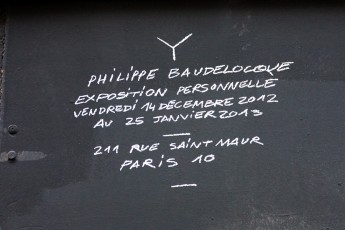 Y
PHILIPPE BAUDELOCQUE
EXPOSITION PERSONNELLE
VENDREDI 14 DÉCEMBRE 2012
AU 25 JANVIER 2013
—
211 RUE SAINT MAUR
PARIS 10
—